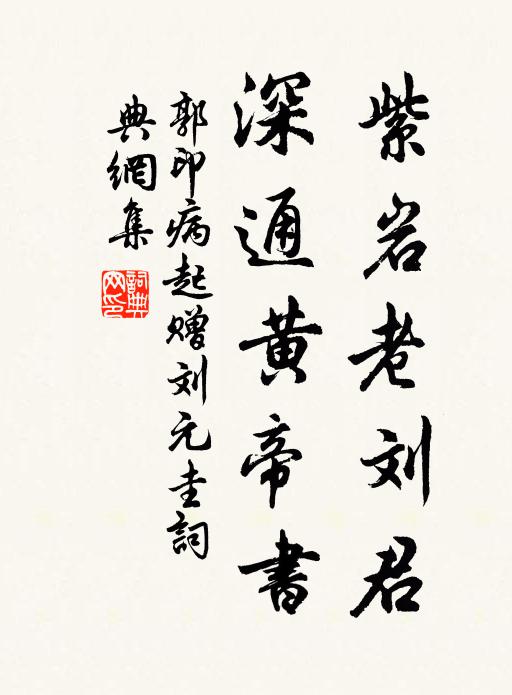 紫岩老刘君
深通黄帝書
郭印病起赠刘元圭詞
典網集
詞典网印